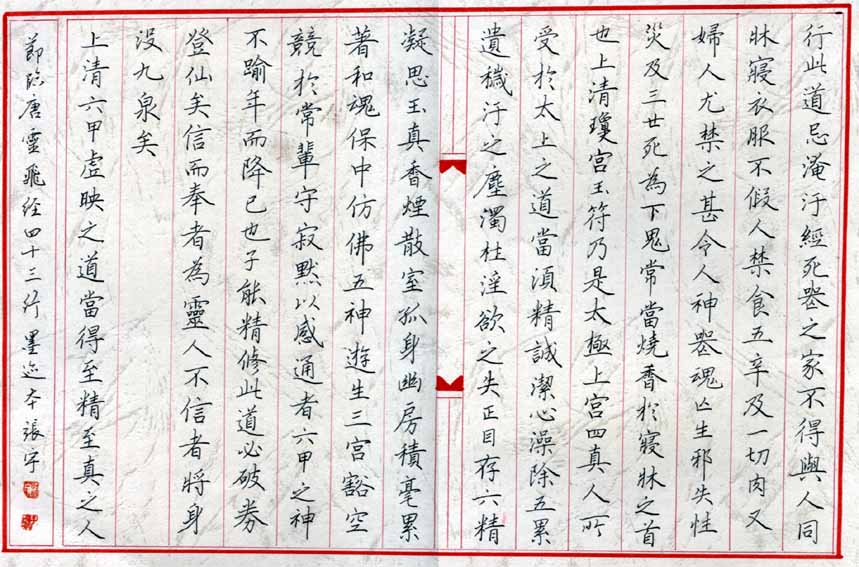 行此道忌淹汙經死喪之家不得與人同
牀寢衣服不假人禁食五辛及一切肉又
婦人尤禁之甚令人神喪魂亡生邪失性
災及三世死為下鬼常當燒香於寢牀之首
也上清瓊宮玉符乃是太極上宮四真人所
受於太上之道當須精誠潔心澡除五累
遺穢汙之塵濁杜淫欲之失正目存六精
凝思玉真香煙散室孤身幽房積毫累
著和魂保中仿佛五神遊生三宮豁空
競於常輩守寂默以感通者六甲之神
不踰年而降已也子能精修此道必破券
登仙矣信而奉者為靈人不信者將身
沒九泉矣
上清六甲虛映之道當得至精至真之人
節臨唐靈飛經四十三行墨迹本張宇